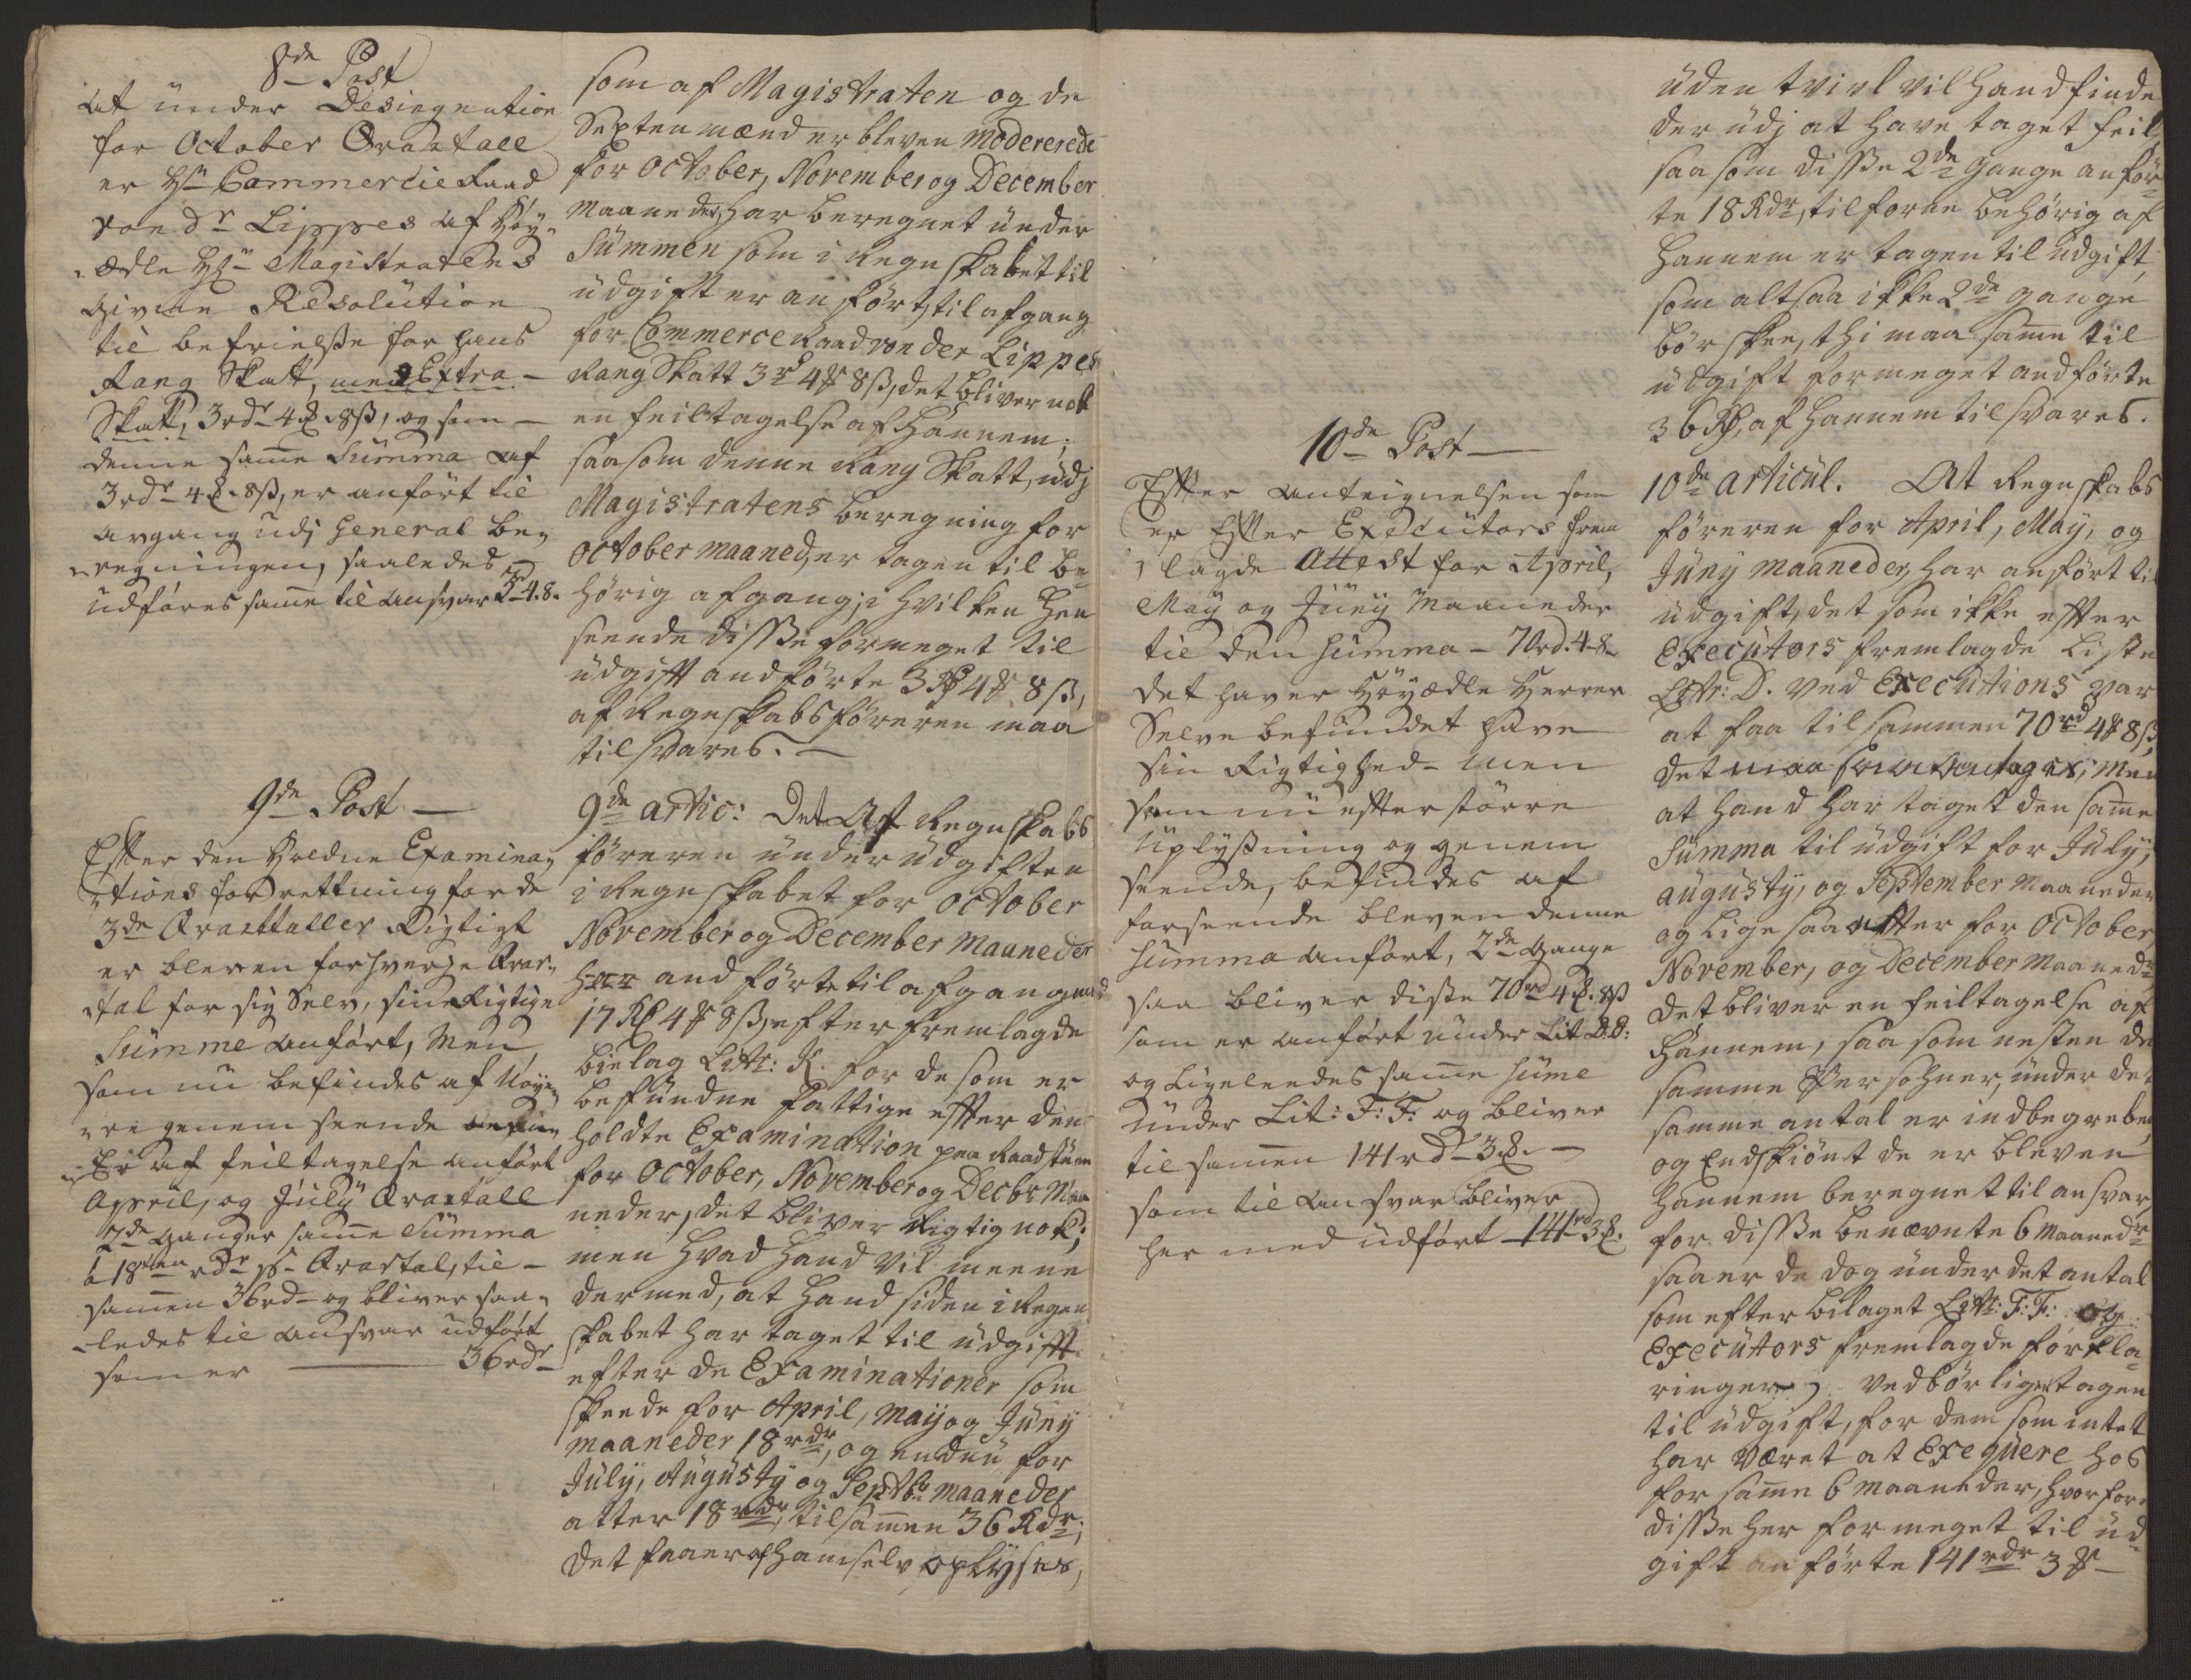 8de Post
at under Desiegnation
for October Qvartall
er Hr Commercie Raad
von dr Lippes af Høy-
ædle Hr Magistratens
givene Resolution
til befrielsse for hans
Rang Skatt, med Extra-
Skatt, 3rdr 4 8ß, og som
denne same Summa af
3rdr 4 8ß, er anført til
avgang udj General be-
regningen, saaledes
udføres same til ansvar 3rd 4. 8.
9de Post
Effter den Holdne Examina-
tions forrettning for de
3de Qvarttaller Rigtigt
er bleven for hver se Qvar-
tal for sig Selv, sin Rigtige
Summe anført, Men
som nu befindes af Nøye-
re genem seende
er af feiltagelse anført
April, og July Qvartall
2de ganger same Summa
á 18ten rdr pr Qvartal, til-
samen 36rd og bliver saa-
ledes til ansvar udført
som er 36rdr
som af Magistraten og de
Septen mænd er bleven modererede
for October, November og December
maaneder, har beregnet under
Summen som i Regnskabet til
udgift er anført, til afgang
for Commerce Raad von der Lippes
Rang Skatt 3rd 4 8ß, det bliver nok
en feiltagelse af Hannem,
saasom denne Rang Skatt, udj
Magistratens beregning for
October maaned, er tagen til be-
hörig afgang; i hvilken Hen
seende disse formeget til
udgifft andförte 3 Rd 4 8ß,
af Regnskabsföreren maa
tilsvares.
9de artic: Det Af Regnskabs
föreren under udgiften
i Regnskabet for October
November og December maaneder
har andförte til afgang
17 Rd 4 8ß, efter fremlagde
bielag Littr: K. for de som er
befundne fattige effter den
holdte Examination paa Raadstuen
for October, November og Decbr Maa
neder, det bliver Rigtig nok;
men hvad hand vil meene
dermed, at hand siden i Regn
skabet har taget til udgifft
efter de Examinationer som
skeede for April, Maij og Juny
maaneder 18rdr, og endnu for
July, Augusty og Septbr maaneder
atter 18rdr, tilsammen 36 Rdr;
det faaer af ham selv oplyses,
10de Post
Effter anteignelsen som
er Effter Executors frem
lagde Attest for April,
May og Juny Maaneder
til den Summa - 70rd. 4. 8
det haver Höyædle Herrer
Selve befundet have
sin Rigtighed - men
som nu effter större
Uplyßning og genem
seende, befindes af
forseende bleven denne
Summa anfört, 2de gange
saa bliver diße 70rd 4. 8ß
som er anfört under Lit D.D:
og Ligeleedes same Sume
under Lit: F: F: og bliver
til samen 141rdr 3
som til ansvar bliver
her med udfört 141rd 3
uden tvivl vil Hand finde
der udj at have taget feil,
saa som disse 2de Gange anför-
te 18 Rdr, tilforne behörig af
hannem er tagen til udgift,
som altsaa ikke 2de gange
bör skee, thi maa same til
udgift formeget andförte
36 Rd, af hannem tilsvares.
10de Articul. At Regnskabs
föreren for April, May, og
Juny maaneder, har anfört til
udgift, det som ikke effter
Executors fremlagde Liste
Littr: D. ved Executions var
at faa tilsammen 70rd 4 8ß,
det maa; men
at hand har taget den same
Summa til udgift for July,
Augusty, og September maaneder
og lige saa atter for October,
November, og December maaneder
det bliver en feiltagelse af
Hannem, saa som nesten de
samme Persohner, under det
samme antal er indbegreben,
og Endskiönt de er bleven
hannem beregnet til ansvar,
for disse benævnte 6 maaneder
saa er de dog under det antal
som efter bilaget Littr: F: F: og
Executors fremlagde forkla-
ringer, vedbörligen tagen
til udgift, for dem som intet
har været at Exeqvere hos
for same 6 maaneder, hvorfor
disse her for meget til ud-
gift anförte 141rdr 3